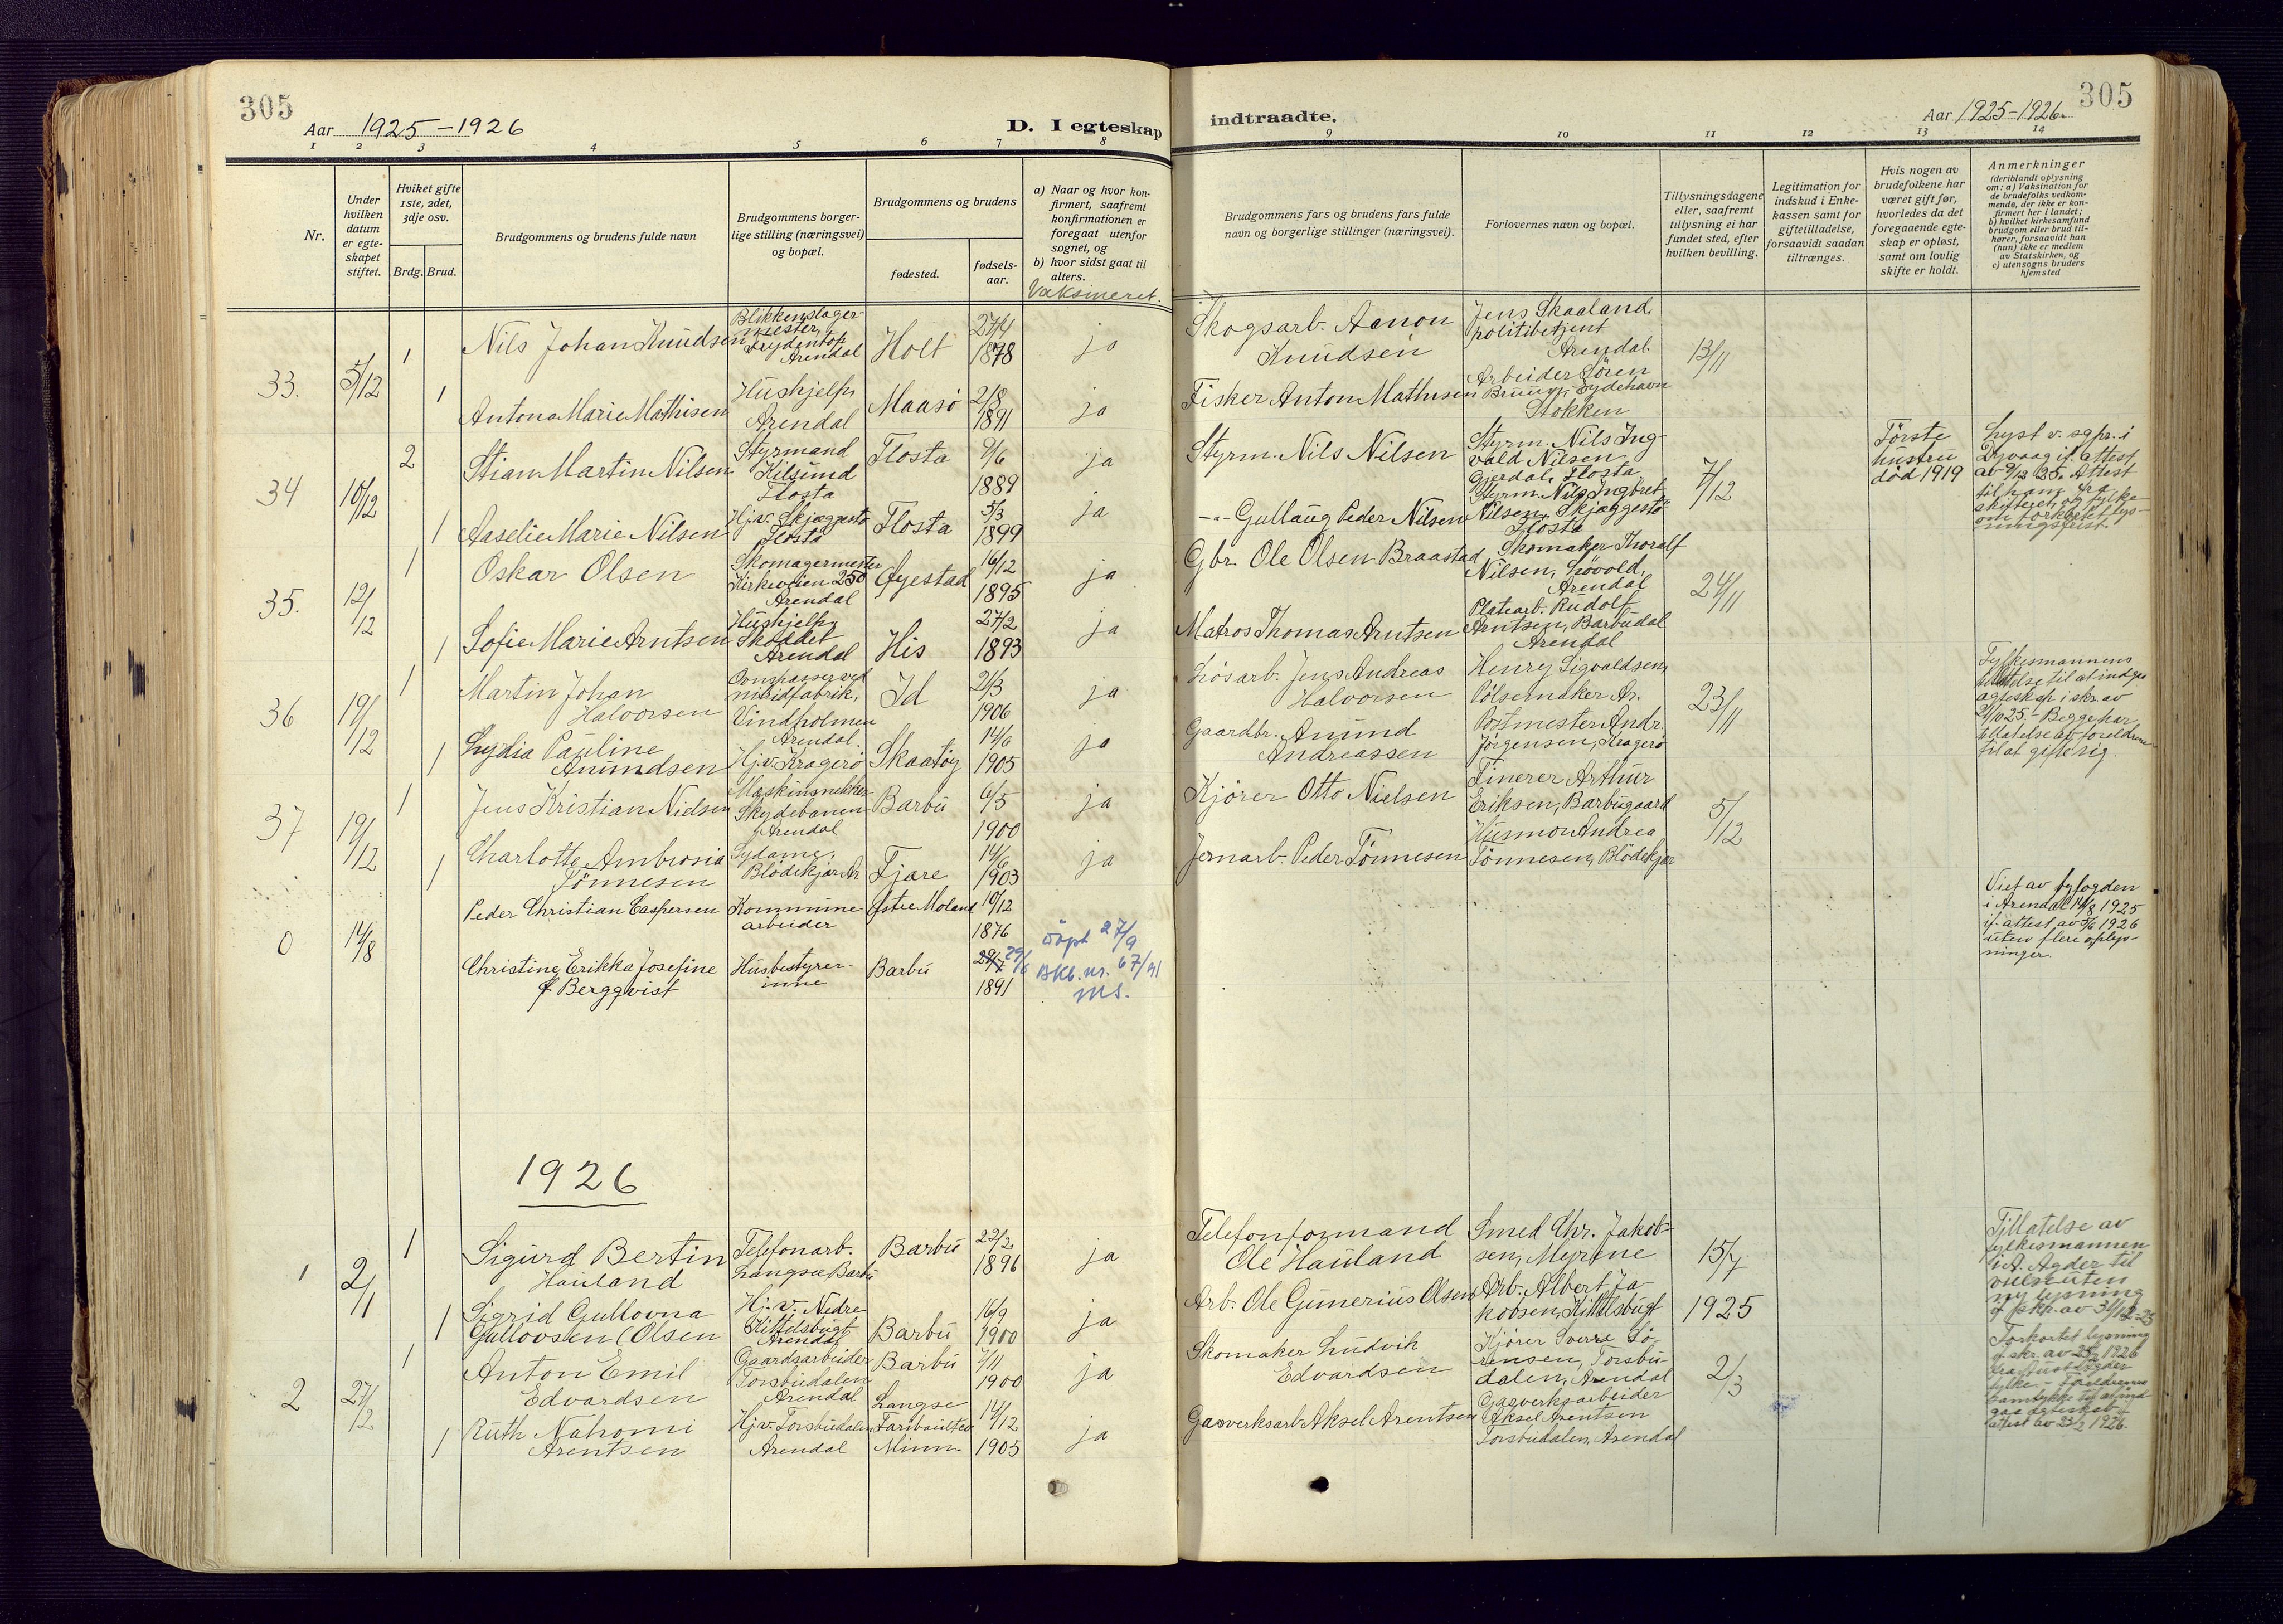 305
Aar 1925-1926
D. I egteskap
indtraadte.
Aar 1925-1926.
305
1 2 3 4 5 6 7 8 9 10 11 12 13 14
Nr.
Under
hvilken
datum
er egte-
skapet
stiftet.
Hviket gifte
1ste, 2det,
3dje osv.
Brdg. Brud.
Brudgommens og brudens fulde navn
Brudgommens borger-
lige stilling (næringsvei)
og bopæl.
Brudgommens og brudens
fødested.
fødsels-
aar.
a) Naar og hvor kon-
firmert, saafremt
konfirmationen er
foregaat utenfor
sognet, og
b) hvor sidst gaat til
alters.
Vaksineret.
Brudgommens fars og brudens fars fulde
navn og borgerlige stillinger (næringsvei).
Forlovernes navn og bopæl.
Tillysningsdagene
eller, saafremt
tillysning ei har
fundet sted, efter
hvilken bevilling.
Legitimation for
indskud i Enke-
kassen samt for
giftetilladelse,
forsaavidt saadan
tiltrænges.
Hvis nogen av
brudefolkene har
været gift før,
hvorledes da det
foregaaende egte-
skap er opløst,
samt om lovlig
skifte er holdt.
Anmerkninger
(deriblandt oplysning
om: a) Vaksination for
de brudefolks vedkom-
mende, der ikke er kon-
firmert her i landet;
b) hvilket kirkesamfund
brudgom eller brud til-
hører, forsaavidt han
(hun) ikke er medlem
av Statskirken, og
c) utensogns bruders
hjemsted
33. 5/12
1 Nils Johan Knudsen
Blikkenslager-
mester,
Arendal
Holt
27/4
1878
ja
Skogsarb. Aanon
Knudsen
Jens Skaaland,
politibetjent
Arendal.
13/11
1 Antona Marie Mathisen
Hushjelp,
Arendal
Maasø
2/8
1891
ja
Fisker Anton Mathisen
Arbeider Søren
Bruun, Eydehavn
Stokken
34 10/12
2 Stian Martin Nilsen
Styrmand
Kilsund
Flosta
Flosta
9/6
1889
ja
Styrm. Nils Nilsen
Styrm. Nils Ing-
vald Nilsen
Gjerdal, Flosta
7/12
Første
hustru
død 1919
Lyst v. sgpr. i
Dyvaag if. attest
av 9/12 25. Attest
1 Aaselie Marie Nilsen
Hj.v. Skjæggestø
Flosta
Flosta
5/3
1899
ja
-"- Gullaug Peder Nilsen
Styrm. Nils Ingbret
Nilsen, Skjæggestø
Flosta
35. 12/12
1 Oskar Olsen
Skomagermester
Kirkeveien 250
Arendal
Øyestad
16/12
1895
ja
Gbr. Ole Olsen Braastad
Skomaker Thoralf
Nilsen, Løvold,
Arendal
24/11
1 Sofie Marie Arntsen
Hushjelp,
Skoddet
Arendal
His
27/2
1893
ja
Matros Thomas Arntsen
Platearb. Rudolf
Arntsen, Barbudal
Arendal
36 19/12
1 Martin Johan
Halvorsen
Vindholmen
Arendal.
Id
21/3
1906
ja
Løsarb. Jens Andreas
Halvorsen
Henry Sigvaldsen,
Pølsemaker Ar.
23/11
Fylkesmannens
tillatelse til at indgaa
ægteskap i skr. av
21/10 25. - Begge har
tillatelse av foreldrene
til at gifte sig.
1 Lydia Pauline
Anundsen
Hj.v. Kragerø
Skaatøy
14/6
1905
ja
Gaardbr. Anund
Andreassen
Postmester Andr.
Jørgensen, Kragerø
37 19/12
1 Jens Kristian Nielsen
Maskinsnekker
Skydebanen
Arendal
Barbu
6/5
1900
ja
Kjører Otto Nielsen
Finerer Arthur
Eriksen, Barbugaard
5/12
1 Charlotte Ambrosia
Tønnesen
Sydame,
Blødekjær Ar
Fjære
14/6
1903
ja
Jernarb. Peder Tønnesen
Husmor Andrea
Tønnesen, Blødekjær
0 14/8
Peder Christian Caspersen
Kommune
arbeider
Østre Moland
10/12
1876
Viet av byfogden
i Arendal 14/8 1925
if. attest av 5/6 1926
uten flere oplys-
ninger.
Christine Erikka Josefine
f. Bergqvist
Husbestyrer-
inne
Barbu
29/7 29/6
1891
døpt 27/9
BKb. nr. 67/91
MS.
1926
1 2/1
1 Sigurd Bertin
Hauland
Telefonarb.
Langsæ Barbu
Barbu
22/2
1896
ja
Telefonformand
Ole Hauland
Smed Chr. Jakob-
sen, Myrene
15/7
1925
Tillatelse av
fylkesmannen
i A. Agder til
vielse uten
ny lysning
f skr. av 31/12-25
1 Sigrid Gullovna
Gullovsen (Olsen
Hj.v. Nedre
Kittelsbugt
Arendal
Barbu
16/9
1900
ja
Arb. Ole Gunerius Olsen
Arb. Albert Ja-
kobsen, Kittelsbugt
2 27/2
1 Anton Emil
Edvardsen
Gaardsarbeider
Torsbudalen
Arendal
Barbu
7/11
1900
ja
Skomaker Ludvik
Edvardsen
Kjører Sverre Sø-
rensen, Torsbu-
dalen, Arendal
2/3
Forkortet lysning
f. skr. av 25/2 1926
fra Aust Agder
fylke. - Foreldrenes
samtykke til at ind
gaa ægteskab f.
attest av 23/2 1926.
1 Ruth Nahomi
Arentsen
Hj.v. Torsbudalen
Arendal
Langsæ
Minn.
14/12
1905
ja
Gasverksarb. Aksel Arentsen
Gasverksarbeider
Aksel Arentsen
Torsbudalen, Arendal